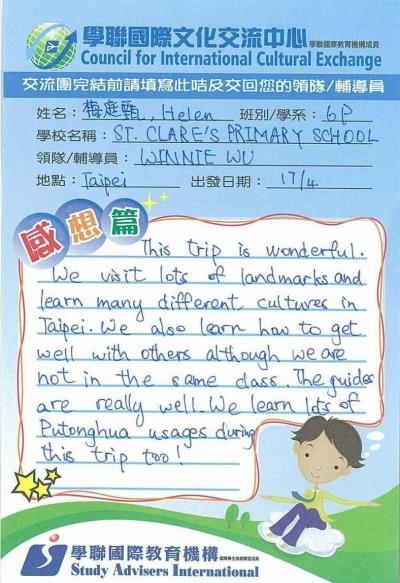 學聯國際文化交流中心 學聯國際教育機構成員
Council for International Cultural Exchange
交流團完結前請填寫此咭及交回您的領隊/輔導員
姓名: 梅庭甄, Helen 班別/學系: 6P
學校名稱: ST. CLARE'S PRIMARY SCHOOL
領隊/輔導員: WINNIE WU
地點: Taipei 出發日期: 17/4
感想篇
This trip is wonderful.
We visit lots of landmarks and
learn many different cultures in
Taipei. We also learn how to get
well with others although we are
not in the same class. The guides
are really well. We learn lots of
Putonghua usages during
this trip too!
學聯國際教育機構
Study Advisers International